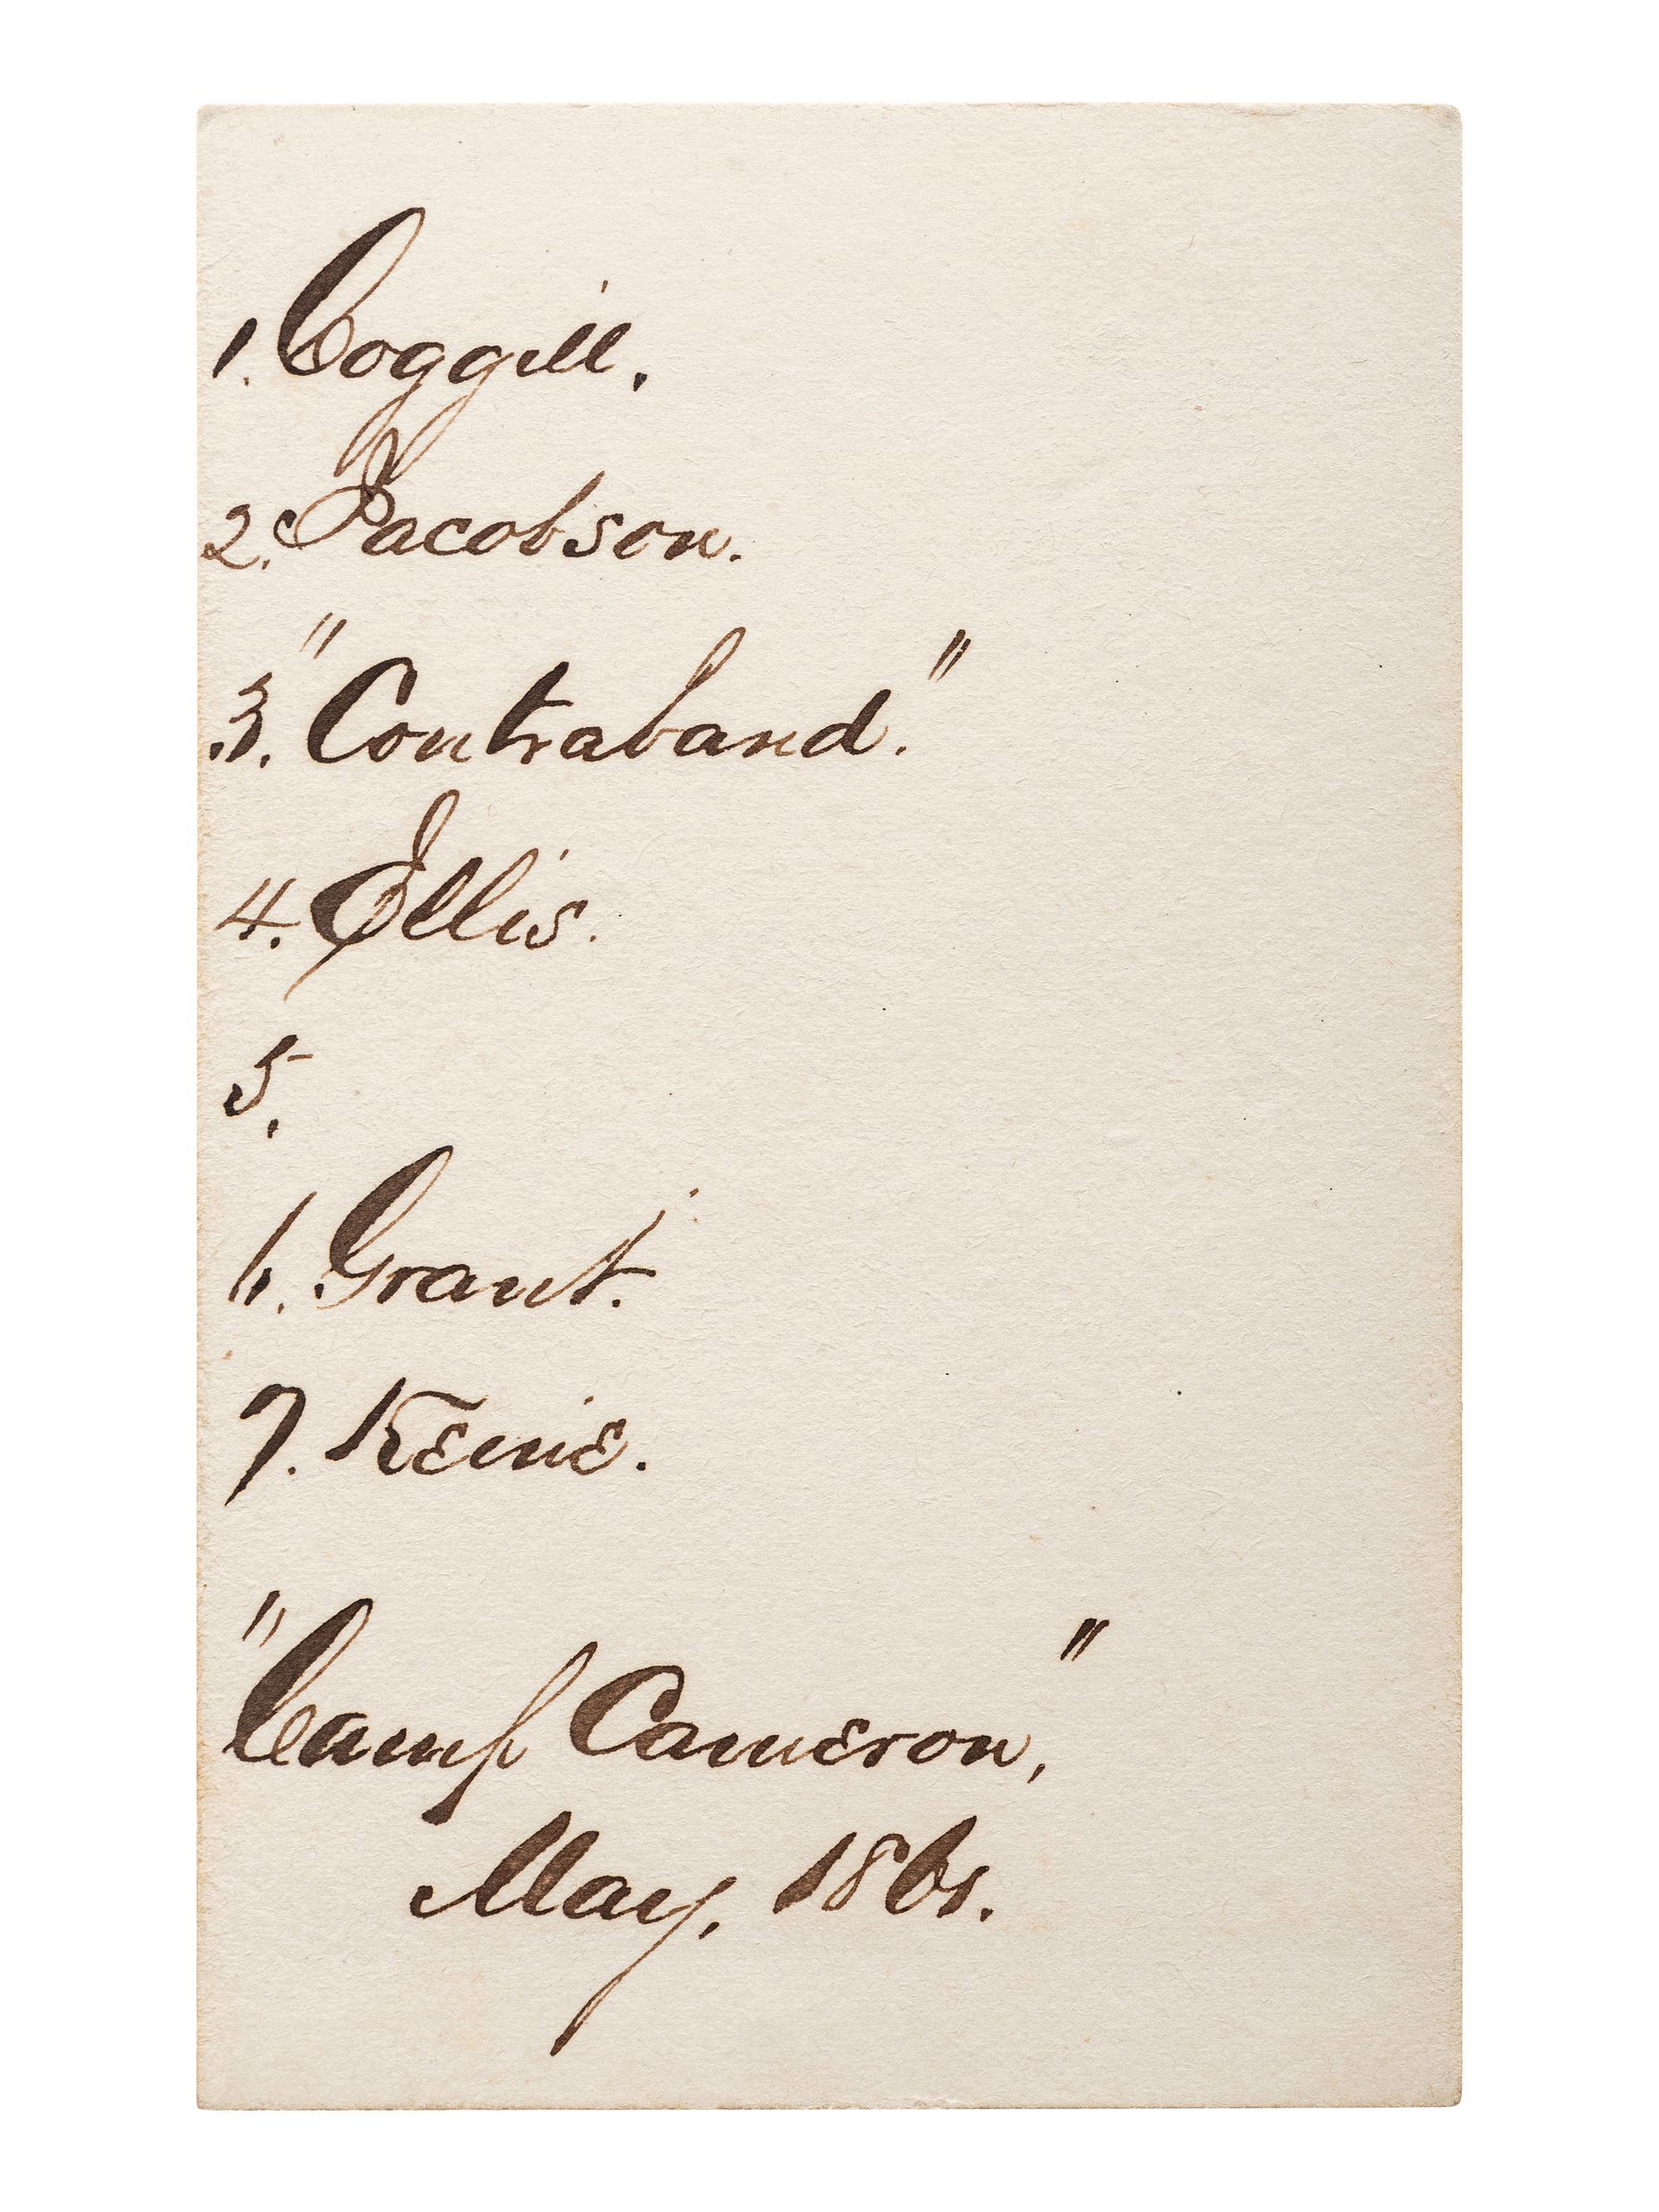 1. Coggill.
2. Jacobson.
3. "Contraband."
4. Ellis.
5.
6. Grant.
7.
"Camp Cameron,"
May, 1861.